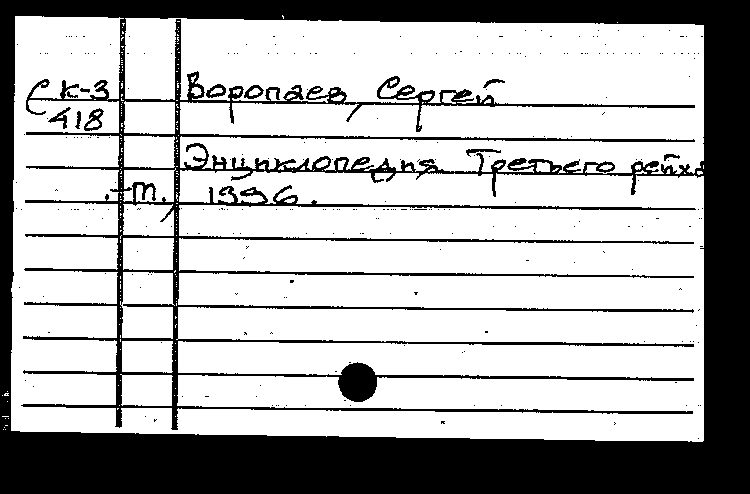 С К-3 Воропаев, Сергей
418
Энциклопедия Третьего рейха
.-М., 1996.